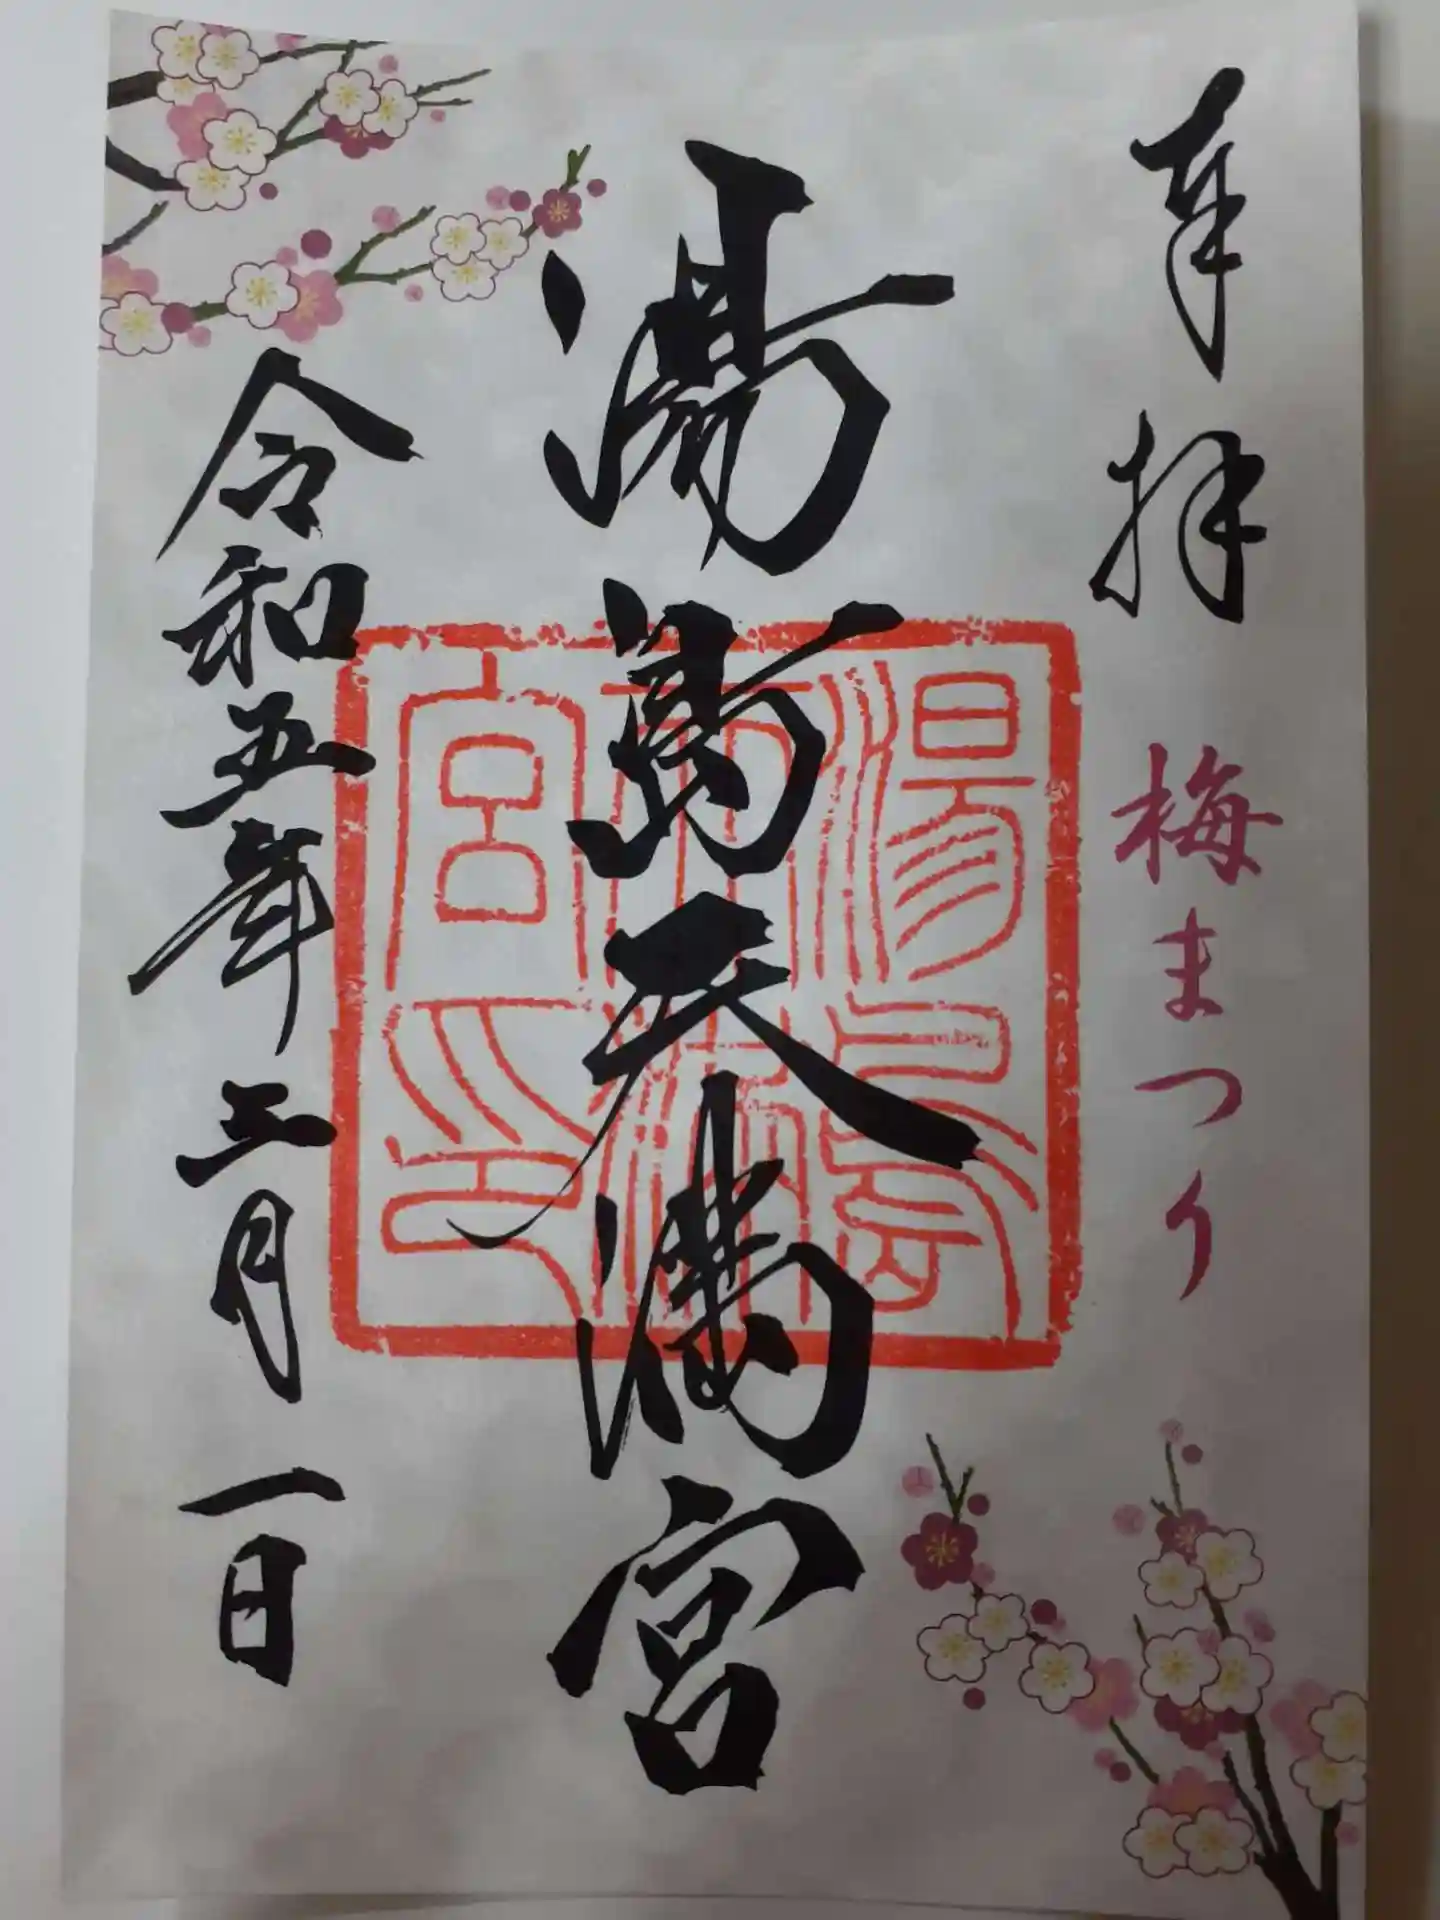 奉拝 梅まつり
湯島天満宮
令和五年三月一日
湯島
天満
宮印